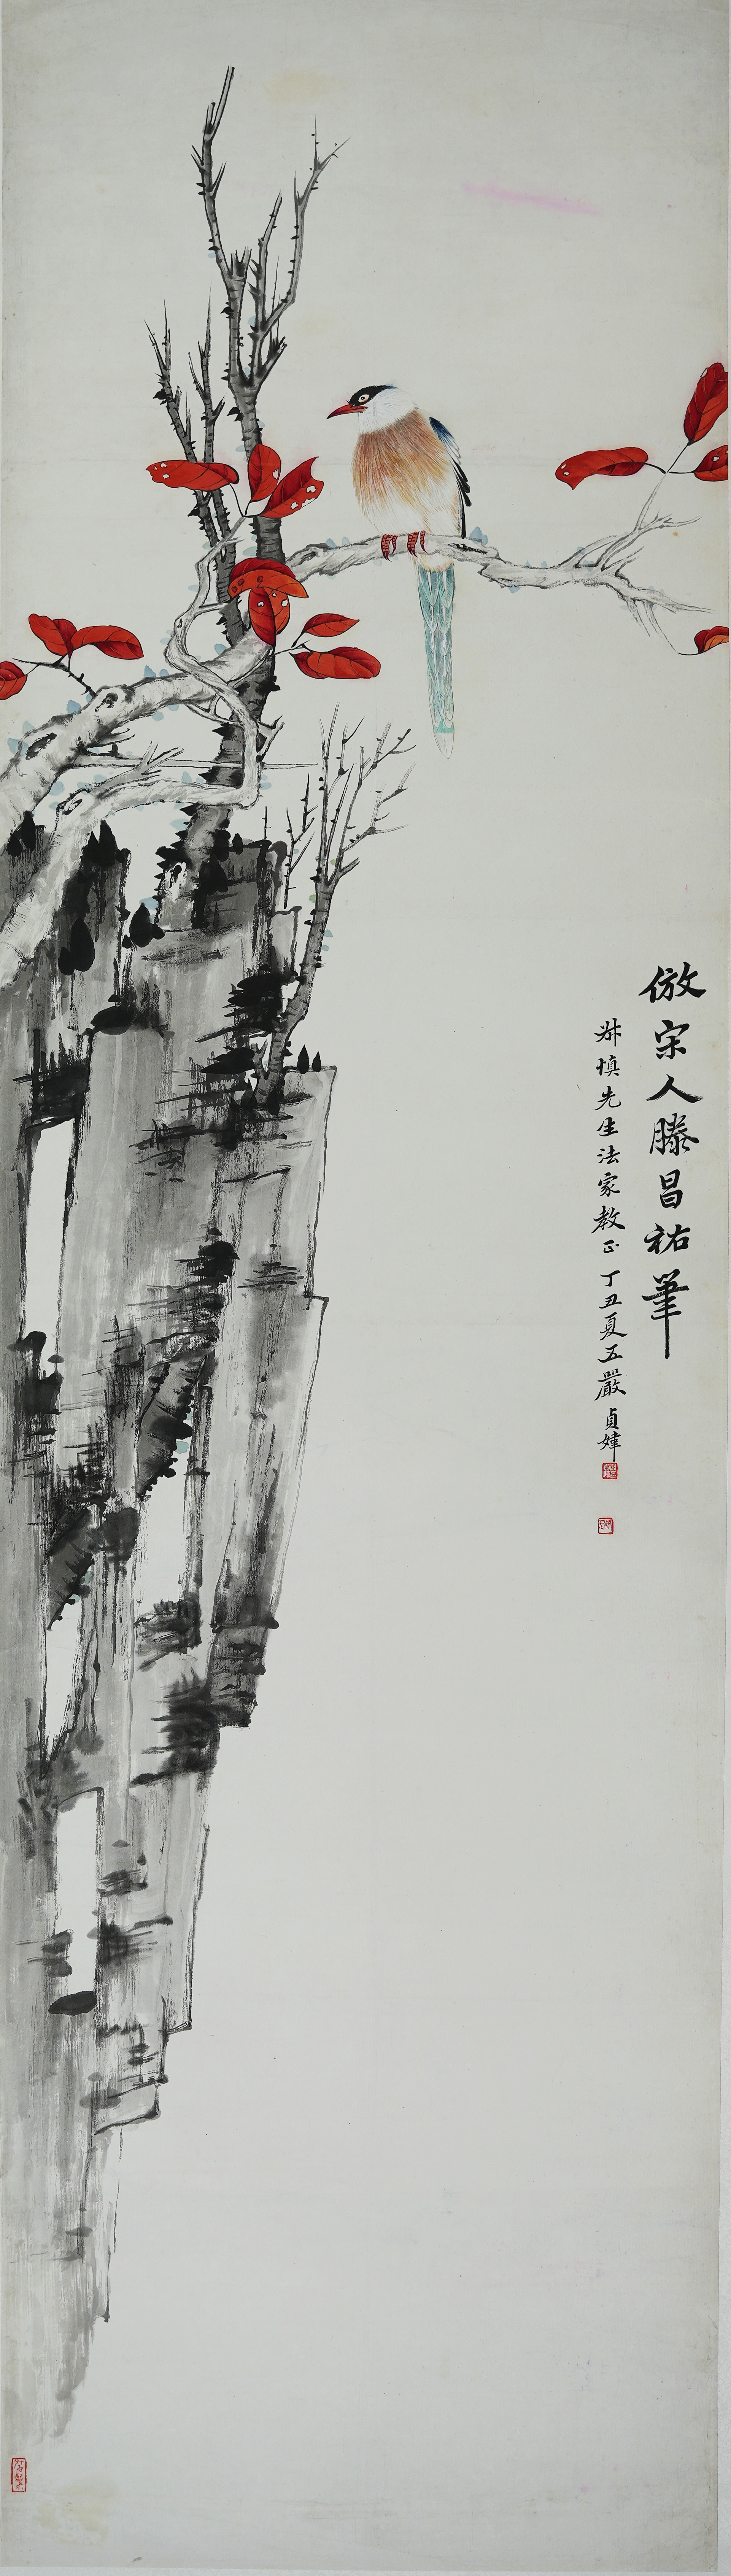 倣宋人滕昌祐筆
叔慎先生法家教正丁丑夏五嚴貞煒